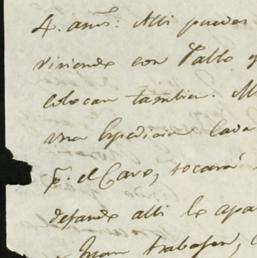 4. años: Alli puedes
viviendo con Pablo y
colocan tambien. M
una Espedicion cada
F. el Cavo, tocará
dejando alli lo
Juan trabajen,